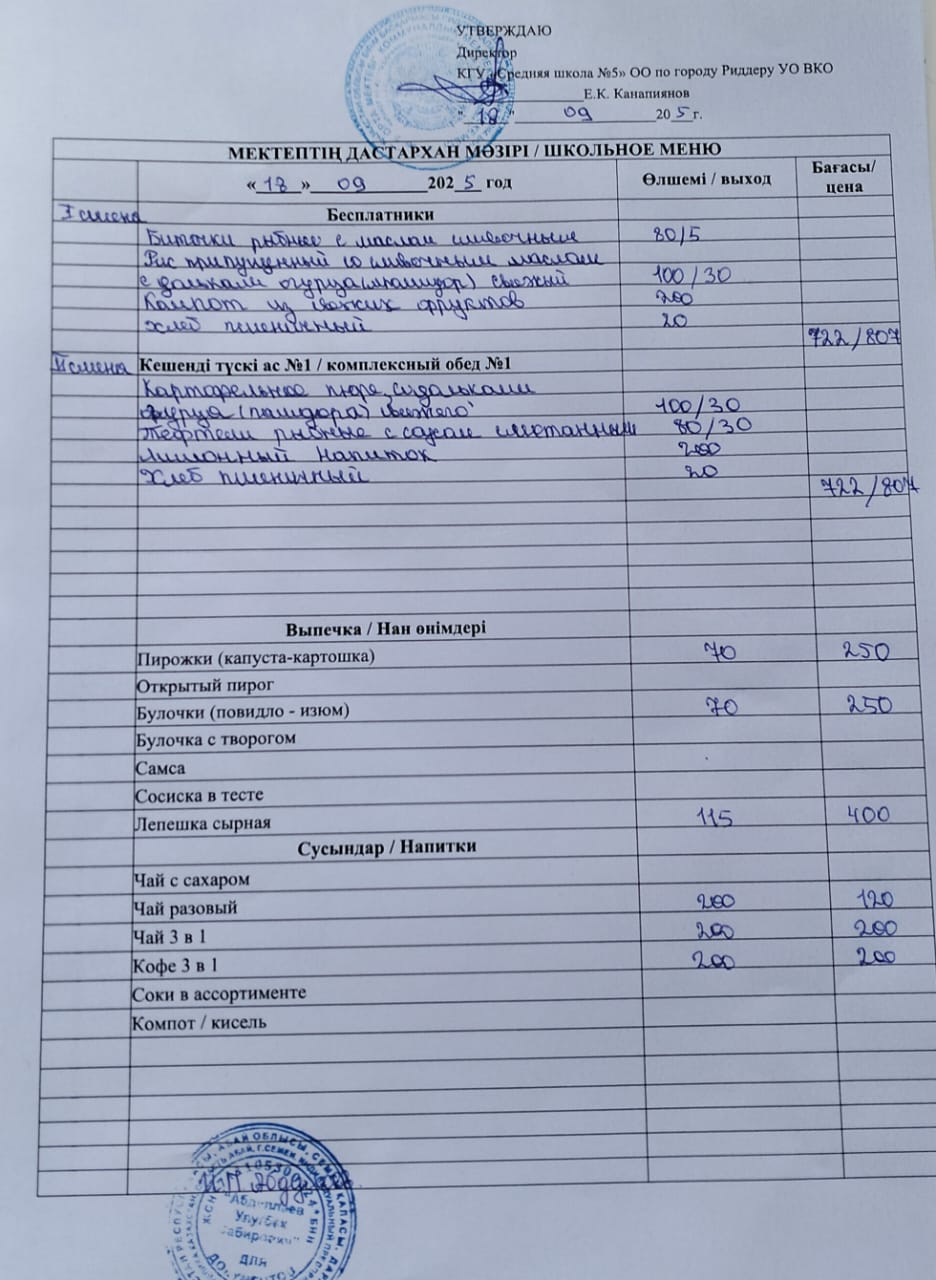 УТВЕРЖДАЮ
Директор
КГУ «Средняя школа №5» ОО по городу Риддеру УО ВКО
Е.К. Канапиянов
"18" 09 2025г.
МЕКТЕПТІҢ ДАСТАРХАН МӘЗІРІ / ШКОЛЬНОЕ МЕНЮ
«18» 09 2025 год Өлшемі / выход Бағасы/ цена
I смена Бесплатники
Биточки рыбные с маслом сливочным 80/5
Рис припущенный со сливочным маслом
с дольками огурца(помидор) свежий 100/30
Компот из свежих фруктов 200
Хлеб пшеничный 20
722/807
II смена Кешенді түскі ас №1 / комплексный обед №1
Картофельное пюре, с дольками
огурца (помидора) свежего 100/30
Тефтели рыбные с соусом сметанным 80/30
Лимонный напиток 200
Хлеб пшеничный 20
722/807
Выпечка / Нан өнімдері
Пирожки (капуста-картошка) 70 250
Открытый пирог
Булочки (повидло - изюм) 70 250
Булочка с творогом
Самса
Сосиска в тесте
Лепешка сырная 115 400
Сусындар / Напитки
Чай с сахаром
Чай разовый 200 120
Чай 3 в 1 200 200
Кофе 3 в 1 200 200
Соки в ассортименте
Компот / кисель
АБАЙ ОБЛЫСЫ, СЕМЕЙ ҚАЛАСЫ
Улугбек
ДЛЯ
ДОКУМЕНТОВ